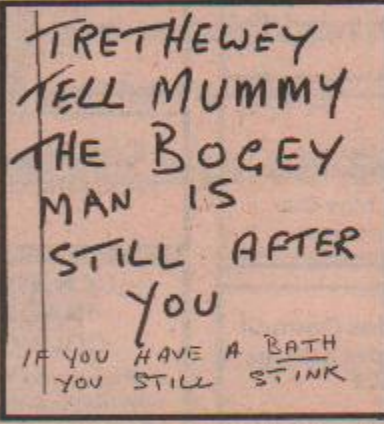 TRETHEWEY
TELL MUMMY
THE BOGEY
MAN IS
STILL AFTER
YOU
IF YOU HAVE A BATH
YOU STILL STINK